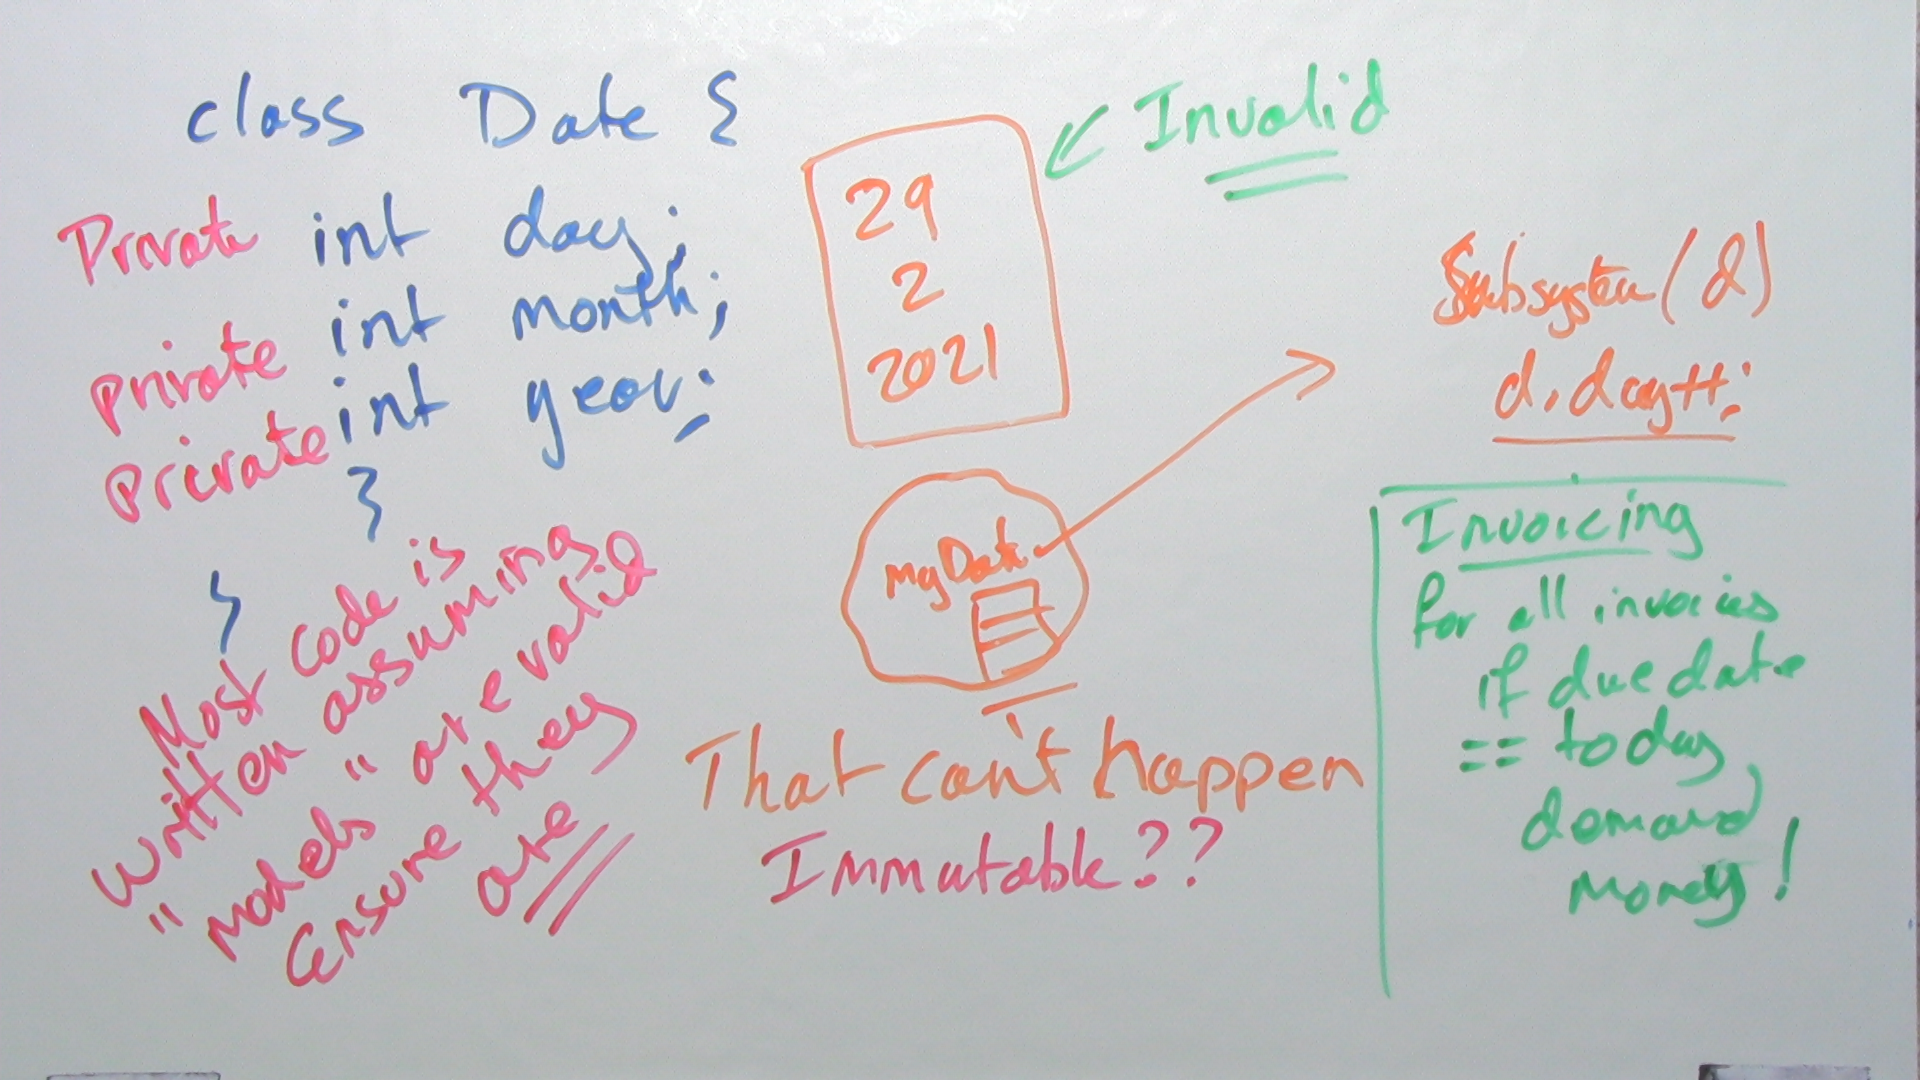 class Date {
Private int day;
private int month;
private int year;
}
}
Most code is
written assuming
"models" are valid
Ensure they
are
29
2
2021
Invalid
MyDate
That can't happen
Immutable??
Subsystem(d)
d.day++;
Invoicing
for all invoices
if due date
== today
demand
money!